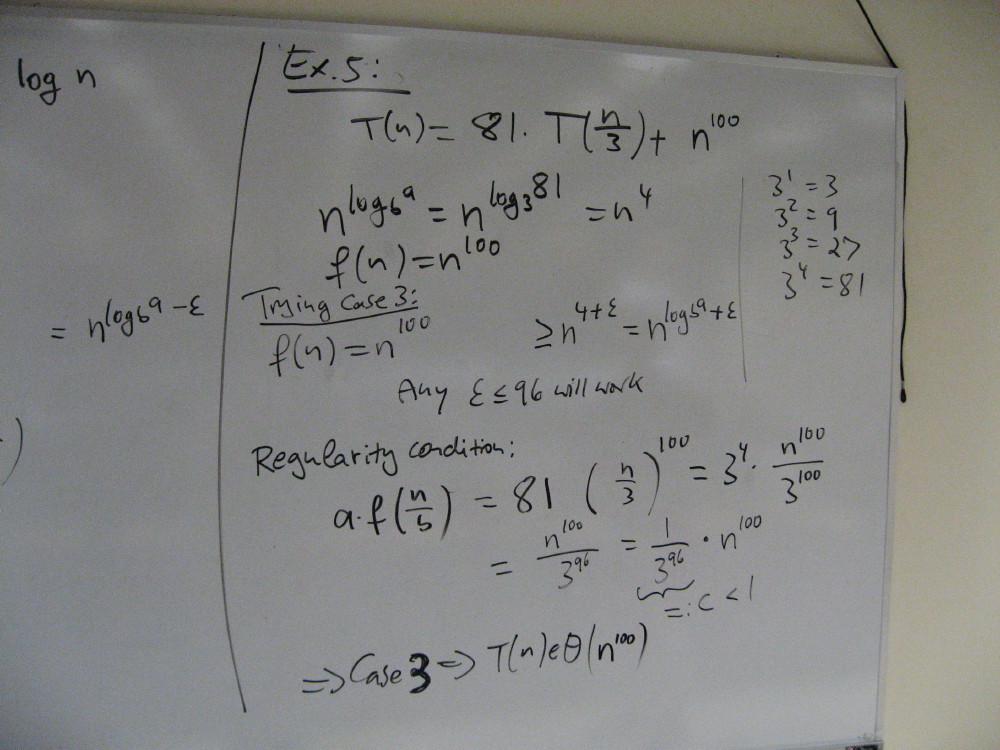 log n
= n^{log_b a - ε}
)
Ex. 5:
T(n) = 81 · T(n/3) + n^{100}
n^{log_b a} = n^{log_3 81} = n^4
f(n) = n^{100}
3^1 = 3
3^2 = 9
3^3 = 27
3^4 = 81
Trying Case 3:
f(n) = n^{100} ≥ n^{4+ε} = n^{log_b a + ε}
Any ε ≤ 96 will work
Regularity condition:
a·f(n/b) = 81 (n/3)^{100} = 3^4 · n^{100}/3^{100}
= n^{100}/3^{96} = 1/3^{96} · n^{100}
=: c < 1
⇒ Case 3 ⇒ T(n) ∈ Θ(n^{100})